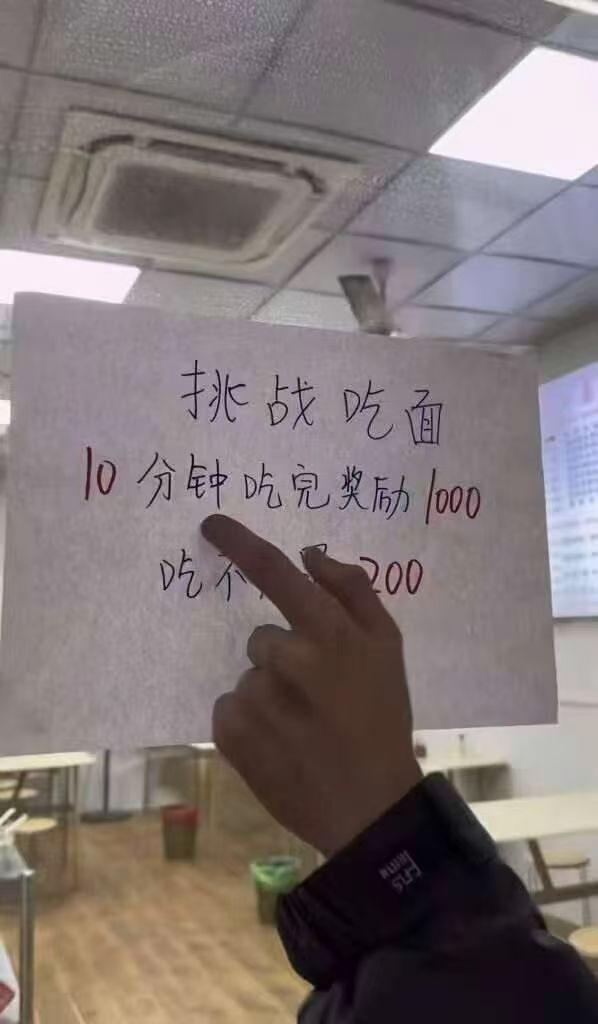 挑战吃面
10分钟吃完奖励1000
吃不 200